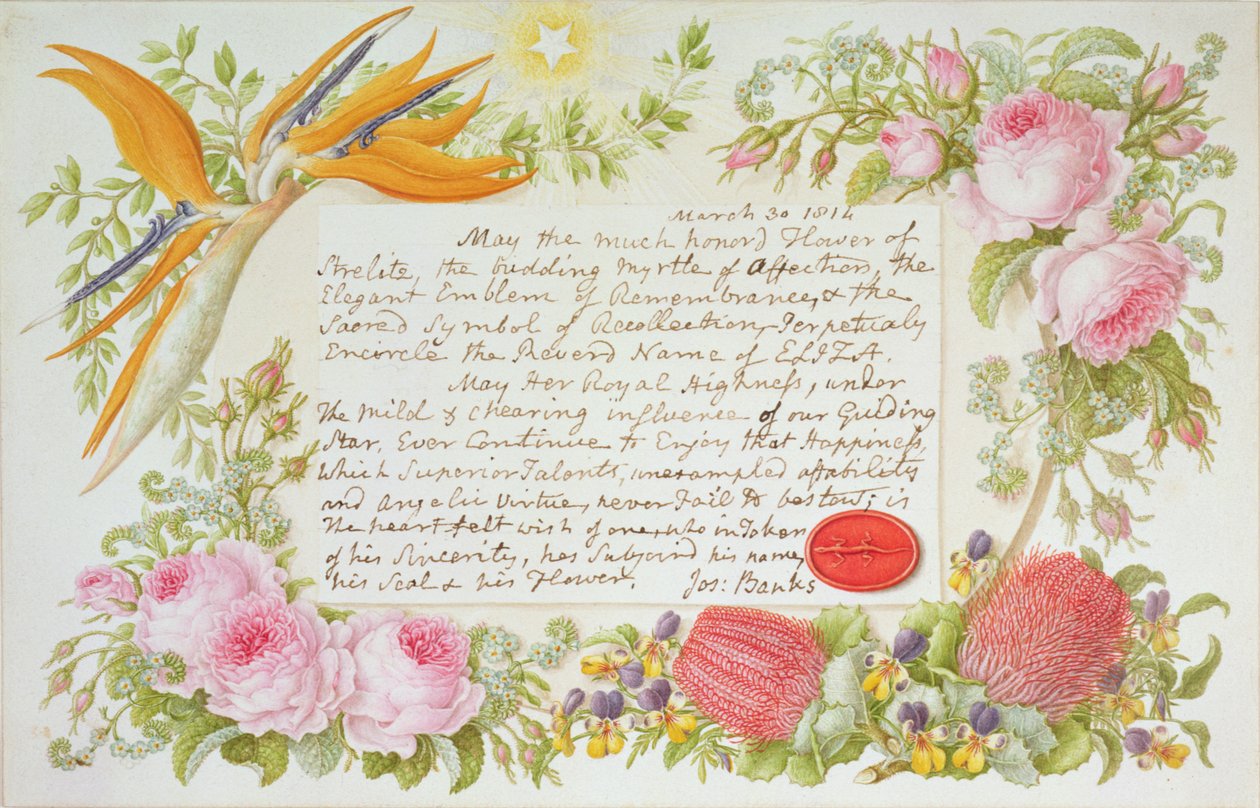 March 30 1814
May the much honord Flower of
Strelitz, the budding myrtle of Affection, the
Elegant Emblem of Remembrance, & the
Sacred Symbol of Recollection, Perpetualy
Encircle the Reverd Name of ELIZA.
May Her Royal Highness, under
the mild & chearing influence of our Guiding
Star, Ever Continue to Enjoy that Happiness,
which Superior Talents, unexampled affability
and Angelic Virtue, never Fail to bestow; is
the heart felt wish of one, who in Token
of his Sincerity, has Subjoind his name,
his Seal & his Flower.  Jos: Banks